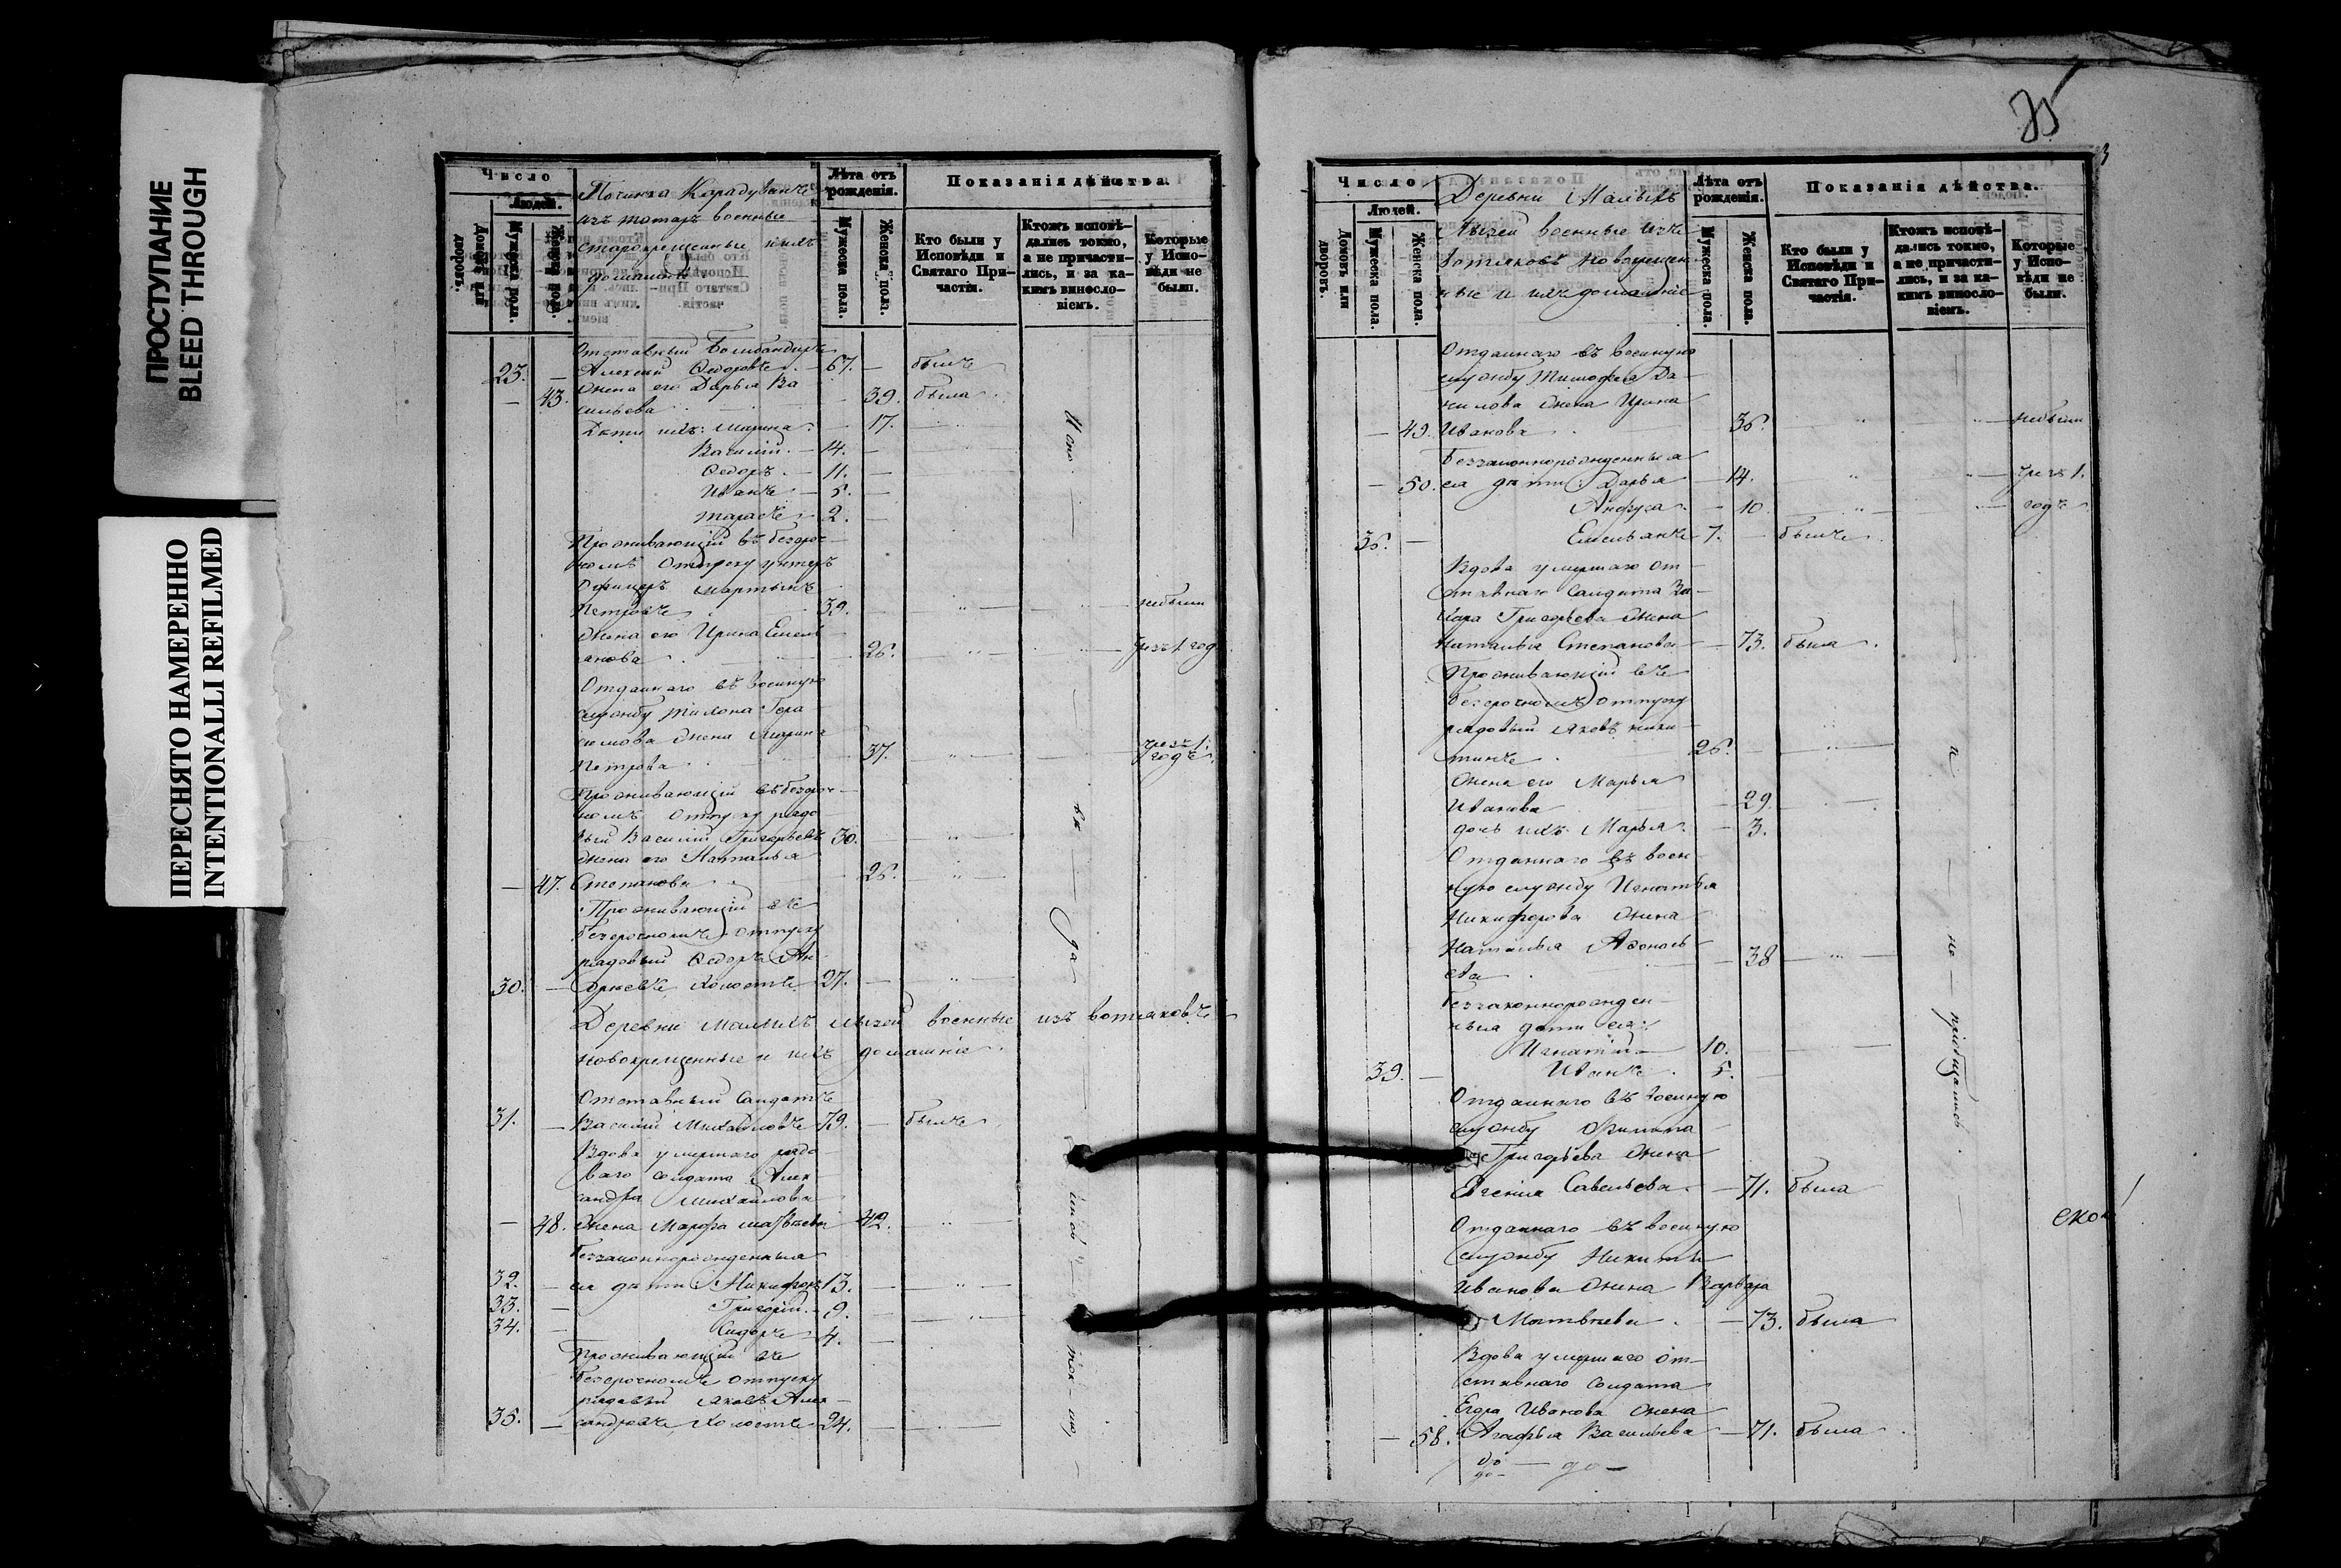 ПРОСТУПАНИЕ
BLEED THROUGH
ПЕРЕСНЯТО НАМЕРЕННО
INTENTIONALLI REFILMED
Число
Людей.
Домовъ или дворовъ.
Мужеска пола.
Женска пола.
Починка Карадувана
изъ татаръ военные
старокрещенные и ихъ
домашніе.
Лѣта отъ рожденія.
Мужеска пола.
Женска пола.
Показанія дѣйства.
Кто были у Исповѣди и Святаго Причастія.
Ктожъ исповѣдались токмо, а не причастились, и за какимъ винословіемъ.
Которые у Исповѣди не были.
Отставный Бомбандиръ
23. — Алексѣй Ѳедоровъ. — 67. — былъ
Жена его Дарья Ва
— 43. сильева — 39. была
Дѣти ихъ: Марина — 17.
Василій. — 14. —
Ѳедоръ. — 11. —
Иванъ — 5. —
Тарасъ — 2. —
Проживающій въ безсроч
номъ отпуску унтеръ
Офицеръ Мартынъ
Петровъ 39. — небыли
Жена его Ирина Емель
янова. 26. чрезъ 1 годъ
Отданнаго въ военную
службу Тихона Гера
симова жена Марина
Петрова 37. чрезъ 1. годъ.
Проживающій въ безсроч
номъ отпуску рядо
вый Василій Григорьевъ 30.
Жена его Наталья
— 47. Степанова 26.
Проживающій въ
безсрочномъ отпуску
рядовый Ѳедоръ Ан
30. — дреевъ, холостъ 27. —
Деревни Малыхъ Лызей военные изъ вотяковъ
новокрещенные и ихъ домашніе.
Отставный Солдатъ
31. — Василій Михайловъ 79. — былъ
Вдова умершаго рядо
ваго солдата Алек
сандра Михайлова
— 48. жена Марфа Матвѣева — 42.
Беззаконнорожденныя
32. — ея дѣти: Никифоръ 13. —
33. — Григорій. — 9. —
34. — Сидоръ 4. —
Проживающій въ
безсрочномъ отпуску
рядовый Яковъ Алек
35. — сандровъ, холостъ 24. —
Испо — вѣ — да
лись — ток — мо, —
35
Число
Людей.
Домовъ или дворовъ.
Мужеска пола.
Женска пола.
Деревни Малыхъ
Лызей военные изъ
вотяковъ новокрещен
ные и ихъ домашніе
Лѣта отъ рожденія.
Мужеска пола.
Женска пола.
Показанія дѣйства.
Кто были у Исповѣди и Святаго Причастія.
Ктожъ исповѣдались токмо, а не причастились, и за какимъ винословіемъ.
Которые у Исповѣди не были.
Отданнаго въ военную
службу Тимофея Да
нилова жена Ирина
— 49. Иванова 36. небыли
Беззаконнорожденныя
— 50. ея дѣти: Дарья — 14. чрезъ 1.
Анфуса — 10 годъ
36. — Емельянъ 7. — былъ
Вдова умершаго от
ставнаго Солдата За
хара Григорьева жена
Наталья Степанова — 73. была
Проживающій въ
безсрочномъ отпуску
рядовый Яковъ Ники
тинъ 26.
Жена его Марья
Иванова — 29.
дочь ихъ Марья — 3.
Отданнаго въ воен
ную службу Игнатья
Никифорова жена
Наталья Аѳонась
ева — 38
Беззаконнорожден
ныя дѣти ея:
Игнатій — 10.
39. — Иванъ 5.
Отданнаго въ военную
службу Филипа
Григорьева жена
Евгенія Савельева — 71. была
Отданнаго въ военную
службу Никиты
Иванова жена Варвара
Матвѣева — 73. была
Вдова умершаго от
ставнаго солдата
Егора Иванова жена
— 58. Агафья Васильева — 71. была
а — не — пріобщались.